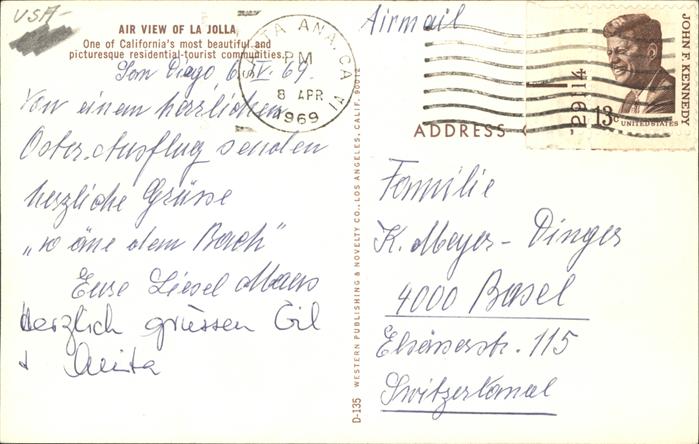 USA
AIR VIEW OF LA JOLLA
One of California's most beautiful and
picturesque residential-tourist communities.
San Diego 6.IV.69.
Von einem herzlichen
Oster-Ausflug senden
herzliche Grüsse
Eure Liesel
Herzlich grüssen
+ Anita
D-135 WESTERN PUBLISHING & NOVELTY CO., LOS ANGELES, CALIF. 90012
SANTA ANA, CA
PM
8 APR
1969
Airmail
29114
JOHN F. KENNEDY
13c UNITED STATES
ADDRESS
Familie
K. Meyer-Dinger
4000 Basel
Elsässerstr. 115
Switzerland